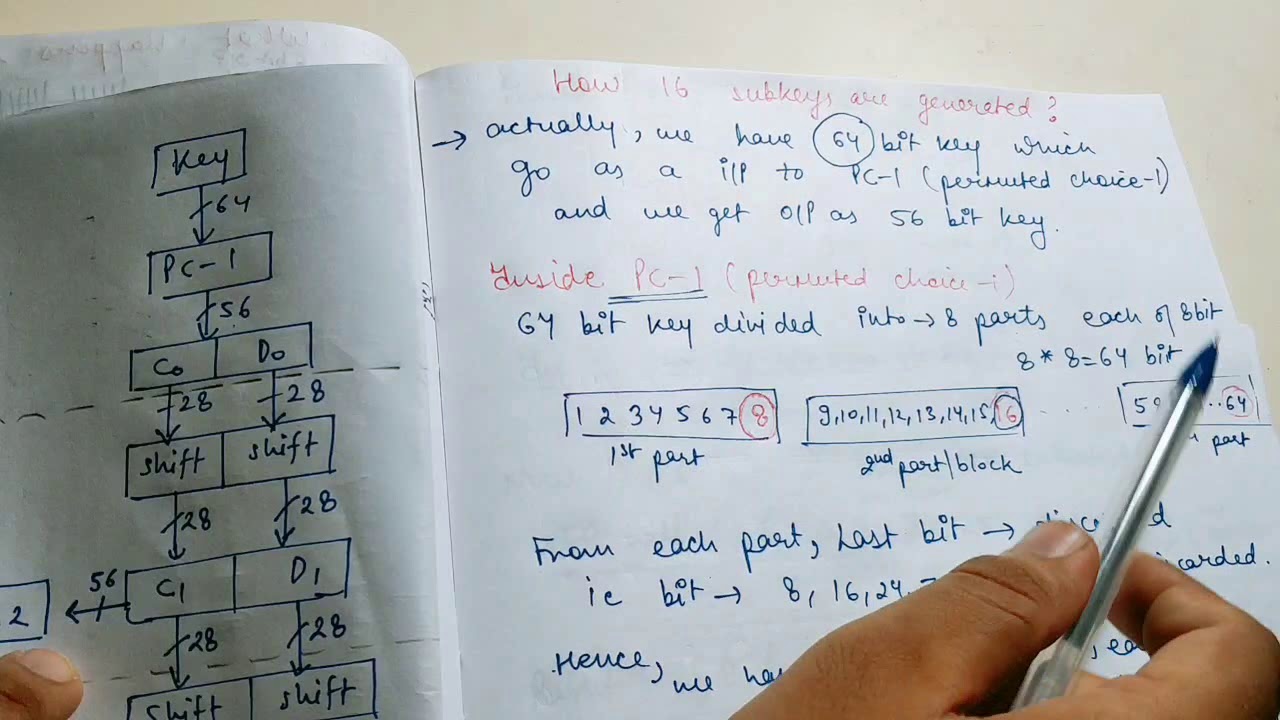 Key
64
PC-1
56
C0 D0
28 28
shift shift
28 28
56
C1 D1
2
28 28
shift shift
How 16 subkeys are generated?
→ actually, we have 64 bit key which
go as a i/p to PC-1 (permuted choice-1)
and we get o/p as 56 bit key.
Inside PC-1 (permuted choice-1)
64 bit key divided into → 8 parts each of 8bit
8 * 8=64 bit
1 2 3 4 5 6 7 8 9,10,11,12,13,14,15,16 ..... 64
1st part 2nd part/block part
From each part, Last bit →
ie bit → 8, 16, 24,
Hence, we